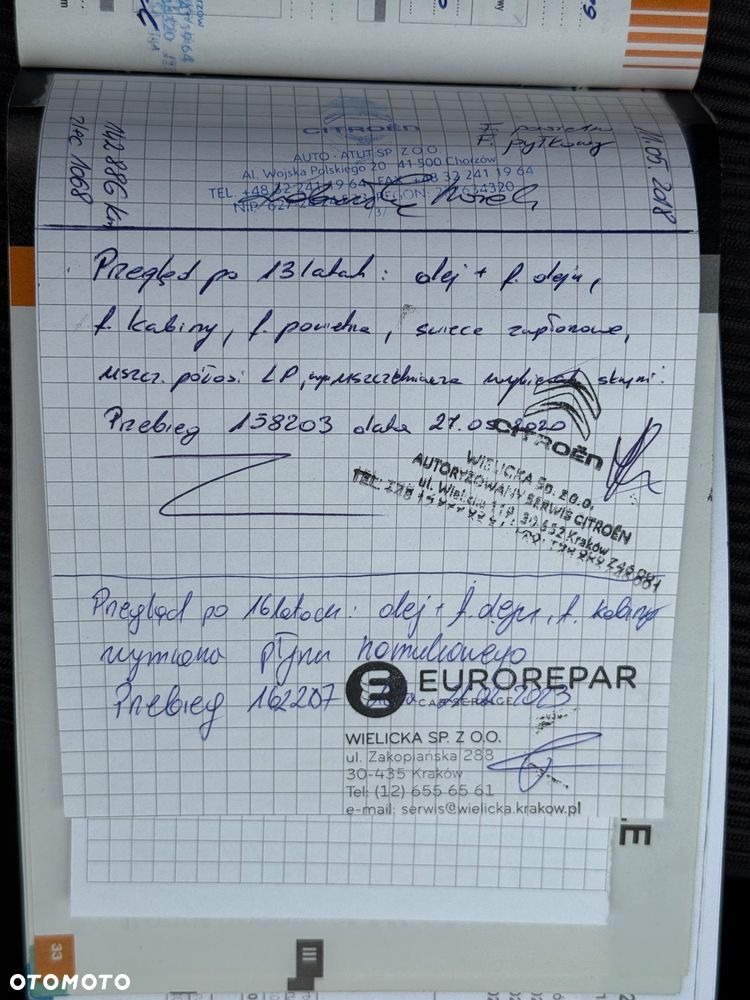 142 886 km
zlec 11068
CITROËN
AUTO - ATUT SP. Z O.O.
Al. Wojska Polskiego 20 41-500 Chorzów
TEL. +48 32 241 19 64 FAX +48 32 241 19 64
NIP: 627- REGON: 634320
F. pyłkowy
11.05.2018
Przegląd po 13 latach: olej + f. oleju,
f. kabiny, f. powietrza, świece zapłonowe,
uszcz. półosi LP,
Przebieg 158203 data 27.05.2020
CITROËN
WIELICKA Sp. z o.o.
AUTORYZOWANY SERWIS CITROËN
ul. Wielicka 119, 30-552 Kraków
Przegląd po 16 latach: olej + f. oleju, f. kabiny
wymiana płynu hamulcowego
Przebieg 162207 2023
EUROREPAR
CAR SERVICE
WIELICKA SP. Z O.O.
ul. Zakopiańska 288
30-435 Kraków
Tel: (12) 655 65 61
e-mail: serwis@wielicka.krakow.pl
33
III
OTOMOTO